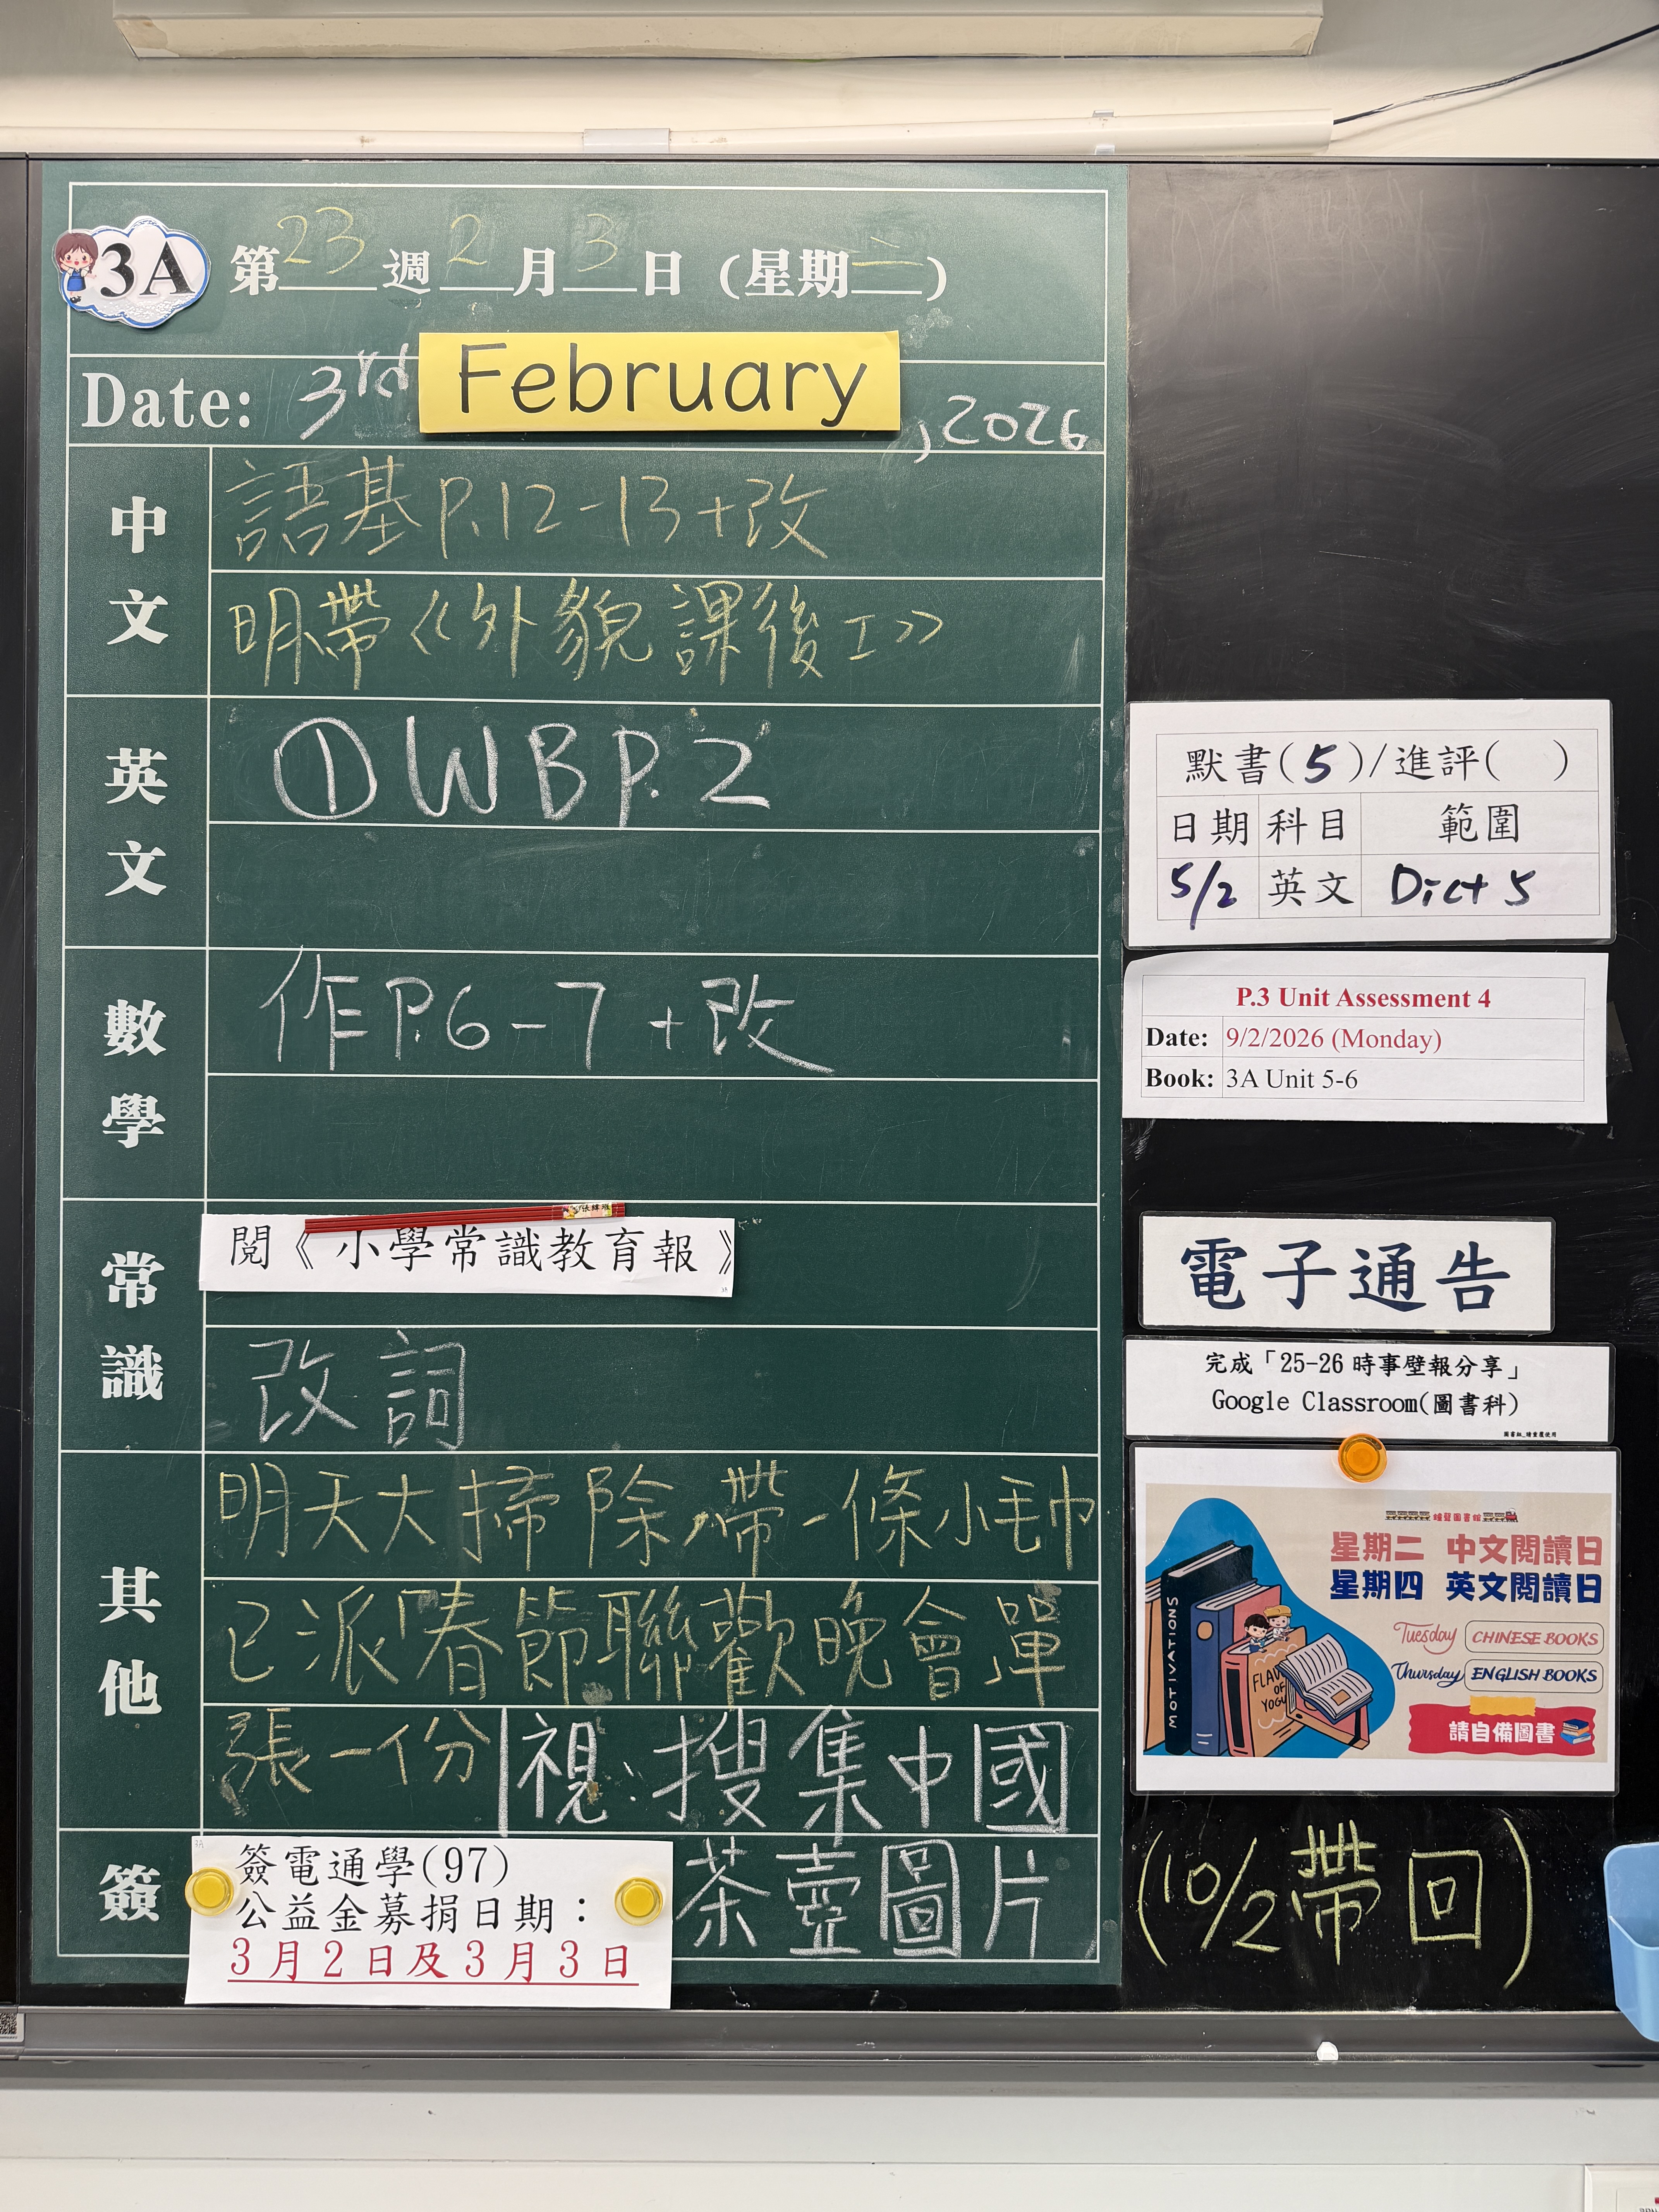 3A 第23週2月3日 (星期二)
Date: 3rd February, 2026
中文
語基P.12-13+改
明帶《外貌課後工》
英文
①WBP.2
數學
作P.6-7+改
常識
閱《小學常識教育報》
改詞
其他
明天大掃除,帶一條小毛巾
已派「春節聯歡晚會單
張一份 視:搜集中國
茶壺圖片
簽
簽電通學(97)
公益金募捐日期：
3月2日及3月3日
默書(5)/進評( )
日期 科目 範圍
5/2 英文 Dict 5
P.3 Unit Assessment 4
Date: 9/2/2026 (Monday)
Book: 3A Unit 5-6
電子通告
完成「25-26時事壁報分享」
Google Classroom(圖書科)
星期二 中文閱讀日
星期四 英文閱讀日
Tuesday CHINESE BOOKS
Thursday ENGLISH BOOKS
請自備圖書
MOTIVATIONS
(10/2帶回)